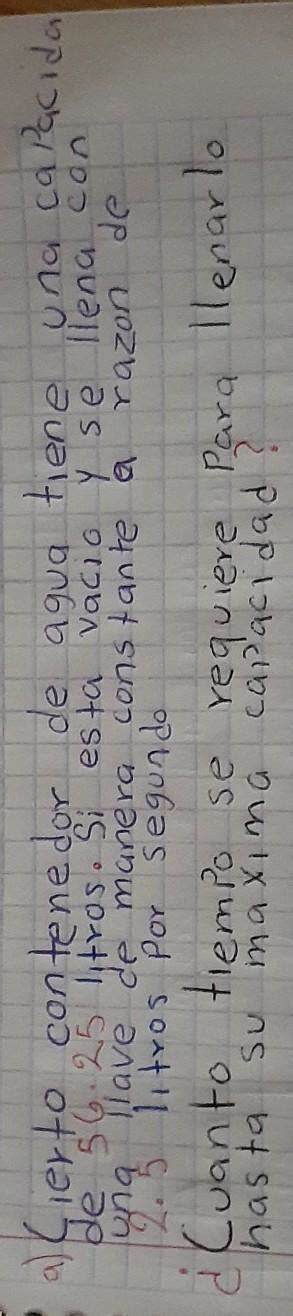 a) Cierto contenedor de agua tiene una capacida
de 56.25 litros. Si esta vacio y se llena con
una llave de manera constante a razon de
2.5 litros por segundo
¿Cuanto tiempo se requiere para llenarlo
hasta su maxima capacidad?